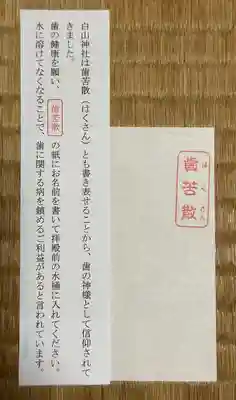 白山神社は歯苦散(はくさん)とも書き表せることから、歯の神様として信仰されて
きました。
歯の健康を願い、歯苦散の紙にお名前を書いて拝殿前の水桶に入れてください。
水に溶けてなくなることで、歯に関する病を鎮めるご利益があると言われています。
歯苦散
はくさん